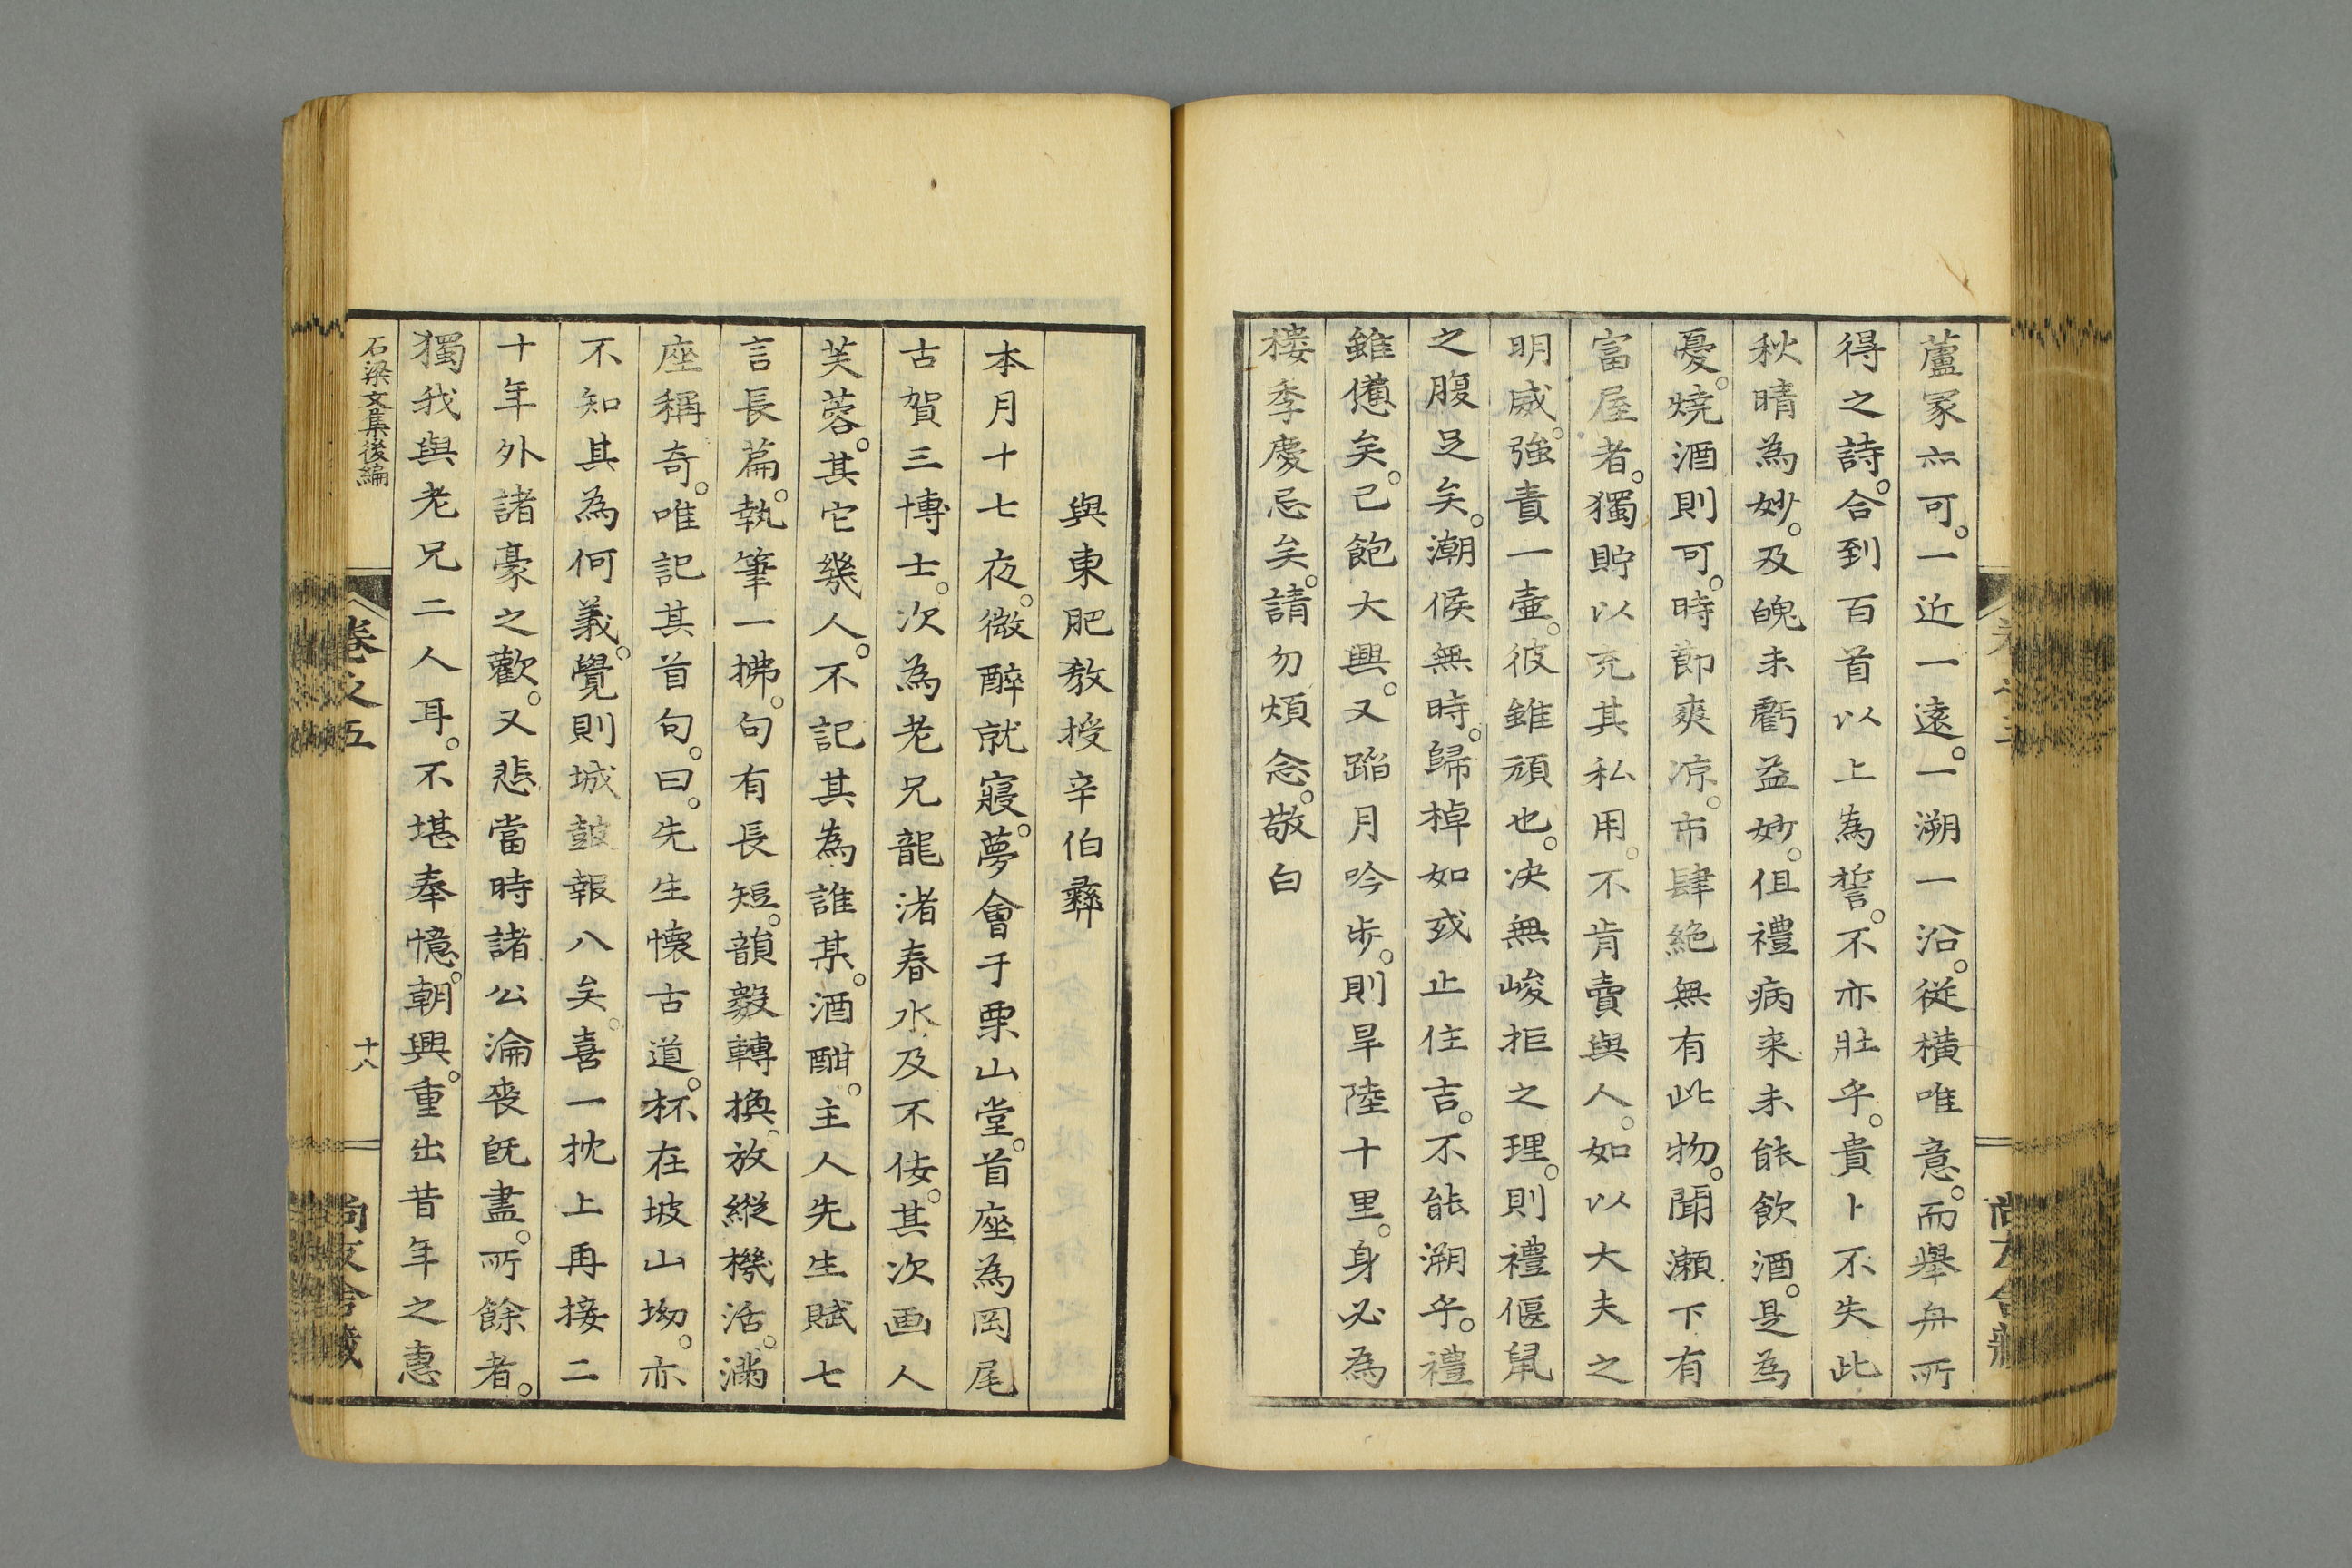 蘆冢亦可。一近一遠。一溯一沿。從橫唯意。而舉舟所
得之詩。合到百首以上為誓。不亦壯乎。貴卜不失此
秋晴為妙。及魄未虧益妙。但禮病来未能飲酒。是為
憂。燒酒則可。時節爽凉。市肆絶無有此物。聞瀬下有
富屋者。獨貯以充其私用。不肯賣與人。如以大夫之
明威。強責一壷。彼雖頑也。决無峻拒之理。則禮偃鼠
之腹足矣。潮候無時。歸棹如或止住吉。不能溯乎。禮
雖憊矣。已飽大興。又蹈月吟步。則旱陸十里。身必為
樓季慶忌矣。請勿煩念。敬白
與東肥教授辛伯彞
本月十七夜。微醉就寢。夢會于栗山堂。首座為岡尾
古賀三博士。次為老兄龍渚春水及不佞。其次画人
芙蓉。其它幾人。不記其為誰某。酒酣。主人先生賦七
言長篇。執筆一拂。句有長短。韻數轉換。放縱機活。滿
座稱奇。唯記其首句。曰。先生懷古道。杯在坡山坳。亦
不知其為何義。覺則城鼓報八矣。喜一枕上再接二
十年外諸豪之歡。又悲當時諸公淪喪既盡。所餘者。
獨我與老兄二人耳。不堪奉憶。朝興。重出昔年之惠
石梁文集後編
卷之五
十八
尚友舍藏